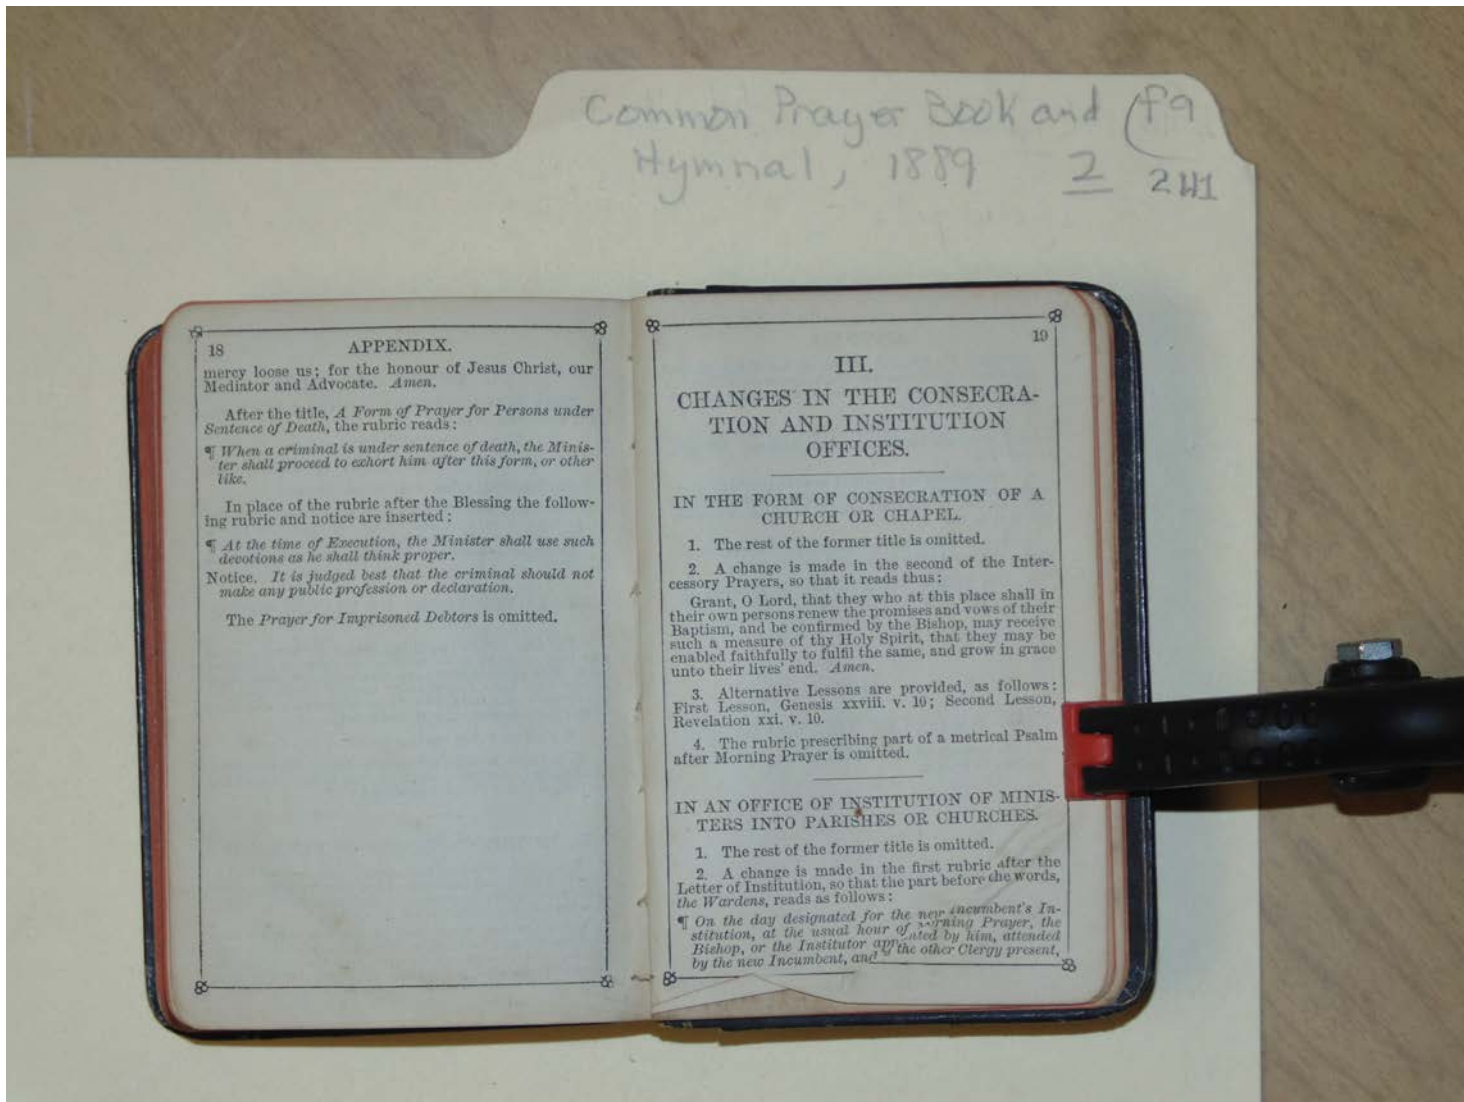 Common Prayer Book and (f9
Hymnal, 1889 2 241
18 APPENDIX.
mercy loose us; for the honour of Jesus Christ, our
Mediator and Advocate. Amen.
After the title, A Form of Prayer for Persons under
Sentence of Death, the rubric reads:
¶ When a criminal is under sentence of death, the Minis-
ter shall proceed to exhort him after this form, or other
like.
In place of the rubric after the Blessing the follow-
ing rubric and notice are inserted:
¶ At the time of Execution, the Minister shall use such
devotions as he shall think proper.
Notice. It is judged best that the criminal should not
make any public profession or declaration.
The Prayer for Imprisoned Debtors is omitted.
19
III.
CHANGES IN THE CONSECRA-
TION AND INSTITUTION
OFFICES.
IN THE FORM OF CONSECRATION OF A
CHURCH OR CHAPEL.
1. The rest of the former title is omitted.
2. A change is made in the second of the Inter-
cessory Prayers, so that it reads thus:
Grant, O Lord, that they who at this place shall in
their own persons renew the promises and vows of their
Baptism, and be confirmed by the Bishop, may receive
such a measure of thy Holy Spirit, that they may be
enabled faithfully to fulfil the same, and grow in grace
unto their lives' end. Amen.
3. Alternative Lessons are provided, as follows:
First Lesson, Genesis xxviii. v. 10; Second Lesson,
Revelation xxi. v. 10.
4. The rubric prescribing part of a metrical Psalm
after Morning Prayer is omitted.
IN AN OFFICE OF INSTITUTION OF MINIS-
TERS INTO PARISHES OR CHURCHES.
1. The rest of the former title is omitted.
2. A change is made in the first rubric after the
Letter of Institution, so that the part before the words,
the Wardens, reads as follows:
¶ On the day designated for the new incumbent's In-
stitution, at the usual hour of Morning Prayer, the
Bishop, or the Institutor appointed by him, attended
by the new Incumbent, and by the other Clergy present,